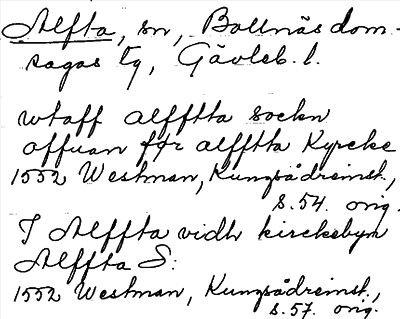 Alfta, sn, Bollnäs dom-
sagas tg, Gävleb. l.
wtaff alfftta sockn
offuan før alfftta Kyrcke
1552 Westman, Kungsådreinst.,
s. 54. orig.
I Alffta vidh kirckebyn
Alffta S:
1552 Westman, Kungsådreinst.,
s. 57. orig.